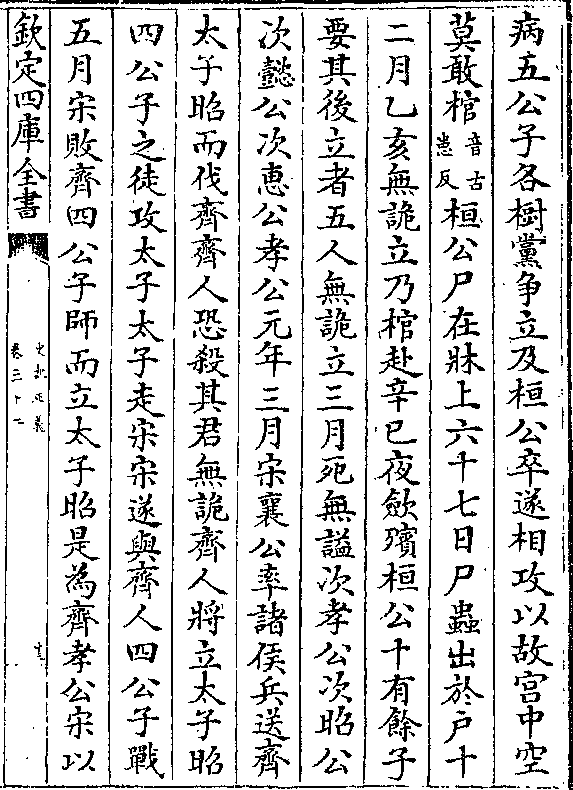 病五公子各樹黨争立及桓公卒遂相攻以故宫中空
莫敢棺音古患反桓公尸在牀上六十七日尸蟲出於户十
二月乙亥無詭立乃棺赴辛巳夜斂殯桓公十有餘子
要其後立者五人無詭立三月死無謚次孝公次昭公
次懿公次惠公孝公元年三月宋襄公率諸侯兵送齊
太子昭而伐齊齊人恐殺其君無詭齊人將立太子昭
四公子之徒攻太子太子走宋宋遂與齊人四公子戰
五月宋敗齊四公子師而立太子昭是為齊孝公宋以
欽定四庫全書
史記正義
卷三十二